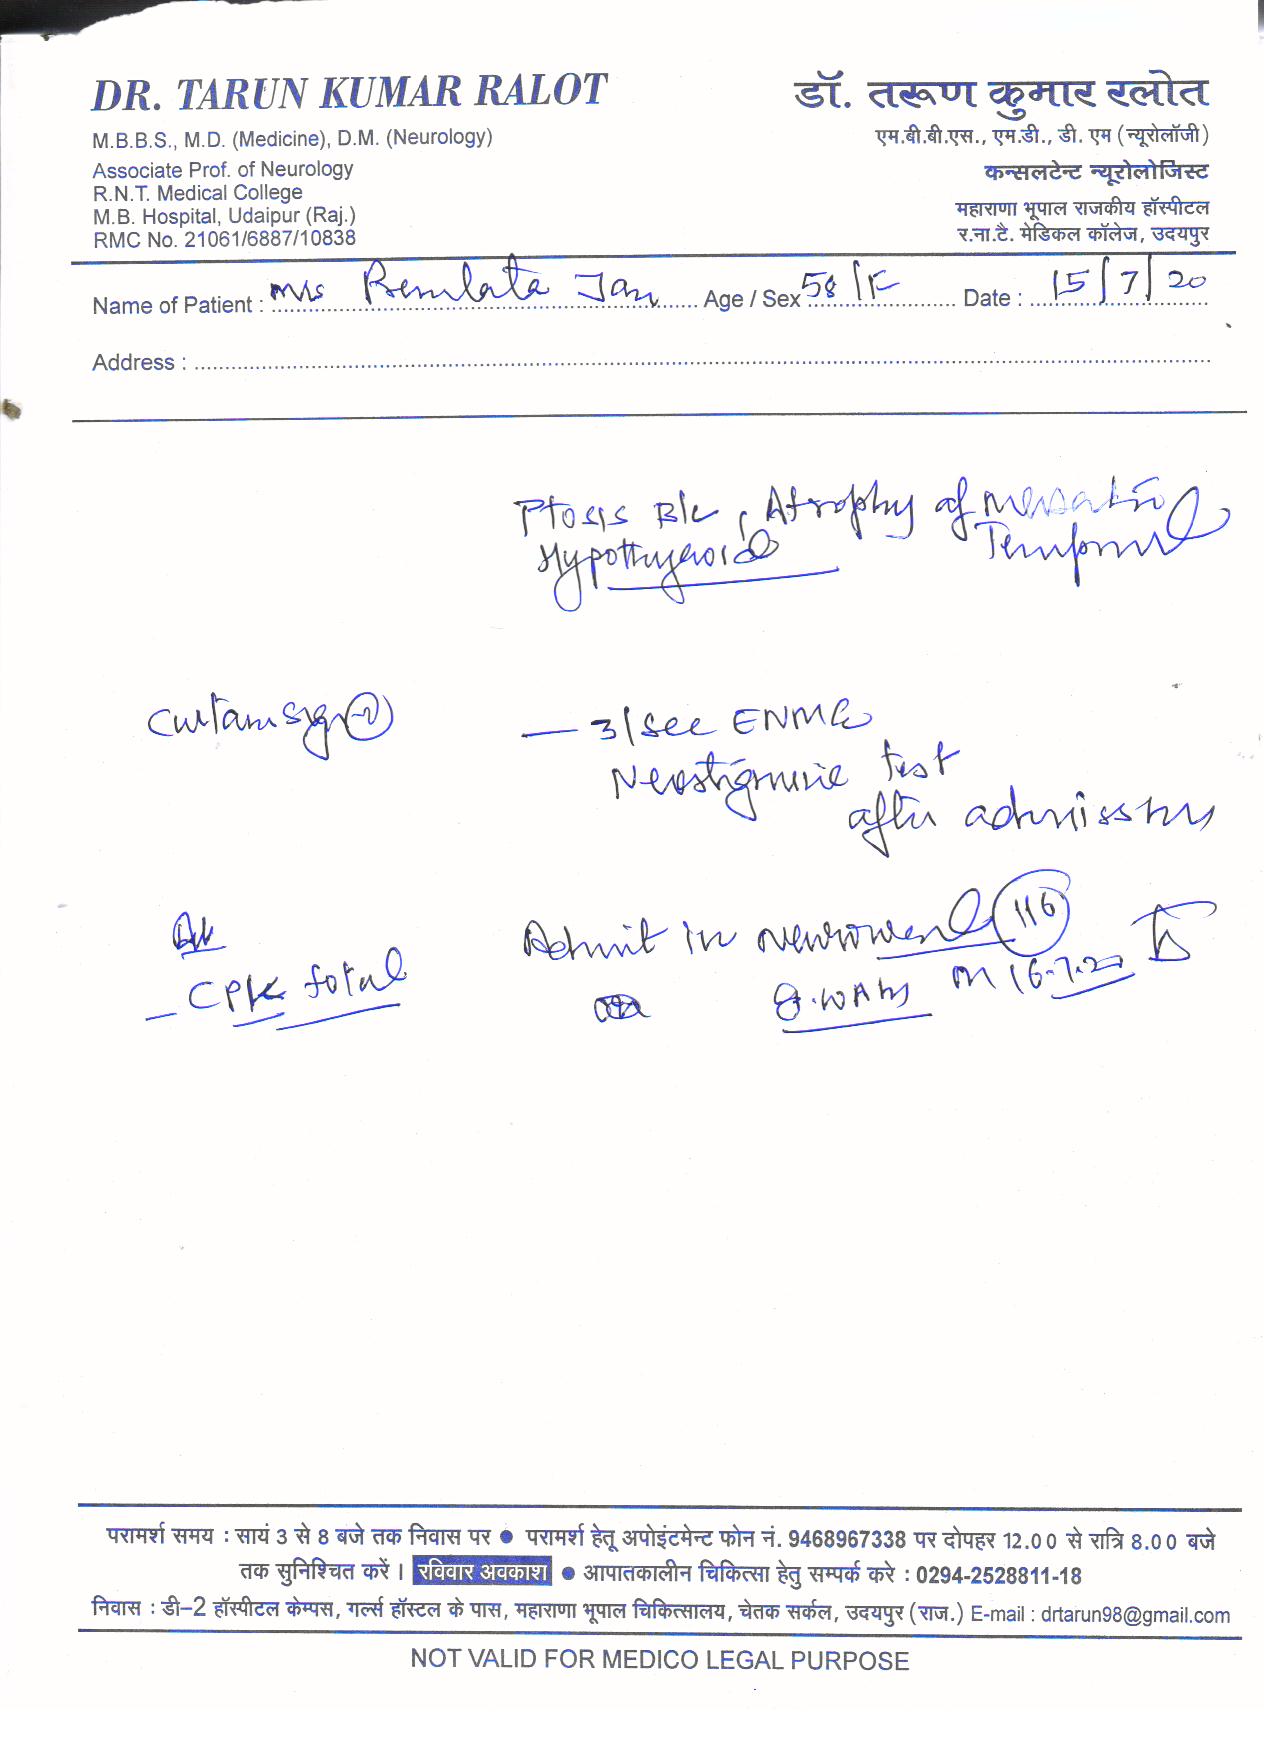 DR. TARUN KUMAR RALOT
M.B.B.S., M.D. (Medicine), D.M. (Neurology)
Associate Prof. of Neurology
R.N.T. Medical College
M.B. Hospital, Udaipur (Raj.)
RMC No. 21061/6887/10838
डॉ. तरूण कुमार रलोत
एम.बी.बी.एस., एम.डी., डी. एम (न्यूरोलॉजी)
कन्सलटेन्ट न्यूरोलोजिस्ट
महाराणा भूपाल राजकीय हॉस्पीटल
र.ना.टै. मेडिकल कॉलेज, उदयपुर
Name of Patient : Mrs Age / Sex 58/F Date : 15/7/20
Address :
Ptosis B/L, Atrophy of
Hypothyroid
Curtain sign
— 3/See ENMG
Neostigmine test
after admission
CPK total
Admit in 116
on 16-7-20
परामर्श समय : सायं 3 से 8 बजे तक निवास पर ● परामर्श हेतू अपोइंटमेन्ट फोन नं. 9468967338 पर दोपहर 12.00 से रात्रि 8.00 बजे
तक सुनिश्चित करें । रविवार अवकाश ● आपातकालीन चिकित्सा हेतु सम्पर्क करे : 0294-2528811-18
निवास : डी–2 हॉस्पीटल केम्पस, गर्ल्स हॉस्टल के पास, महाराणा भूपाल चिकित्सालय, चेतक सर्कल, उदयपुर (राज.) E-mail : drtarun98@gmail.com
NOT VALID FOR MEDICO LEGAL PURPOSE